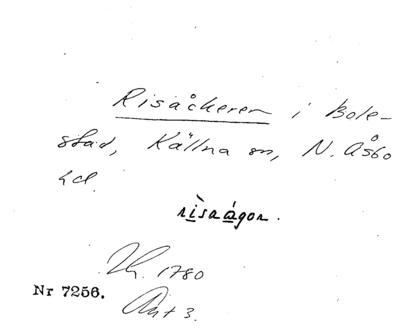 Risåckeren i Bole-
stad, Källna sn, N. Åsbo
hd.
rìsaágon.
1780
Nr 7256.
Akt 3.